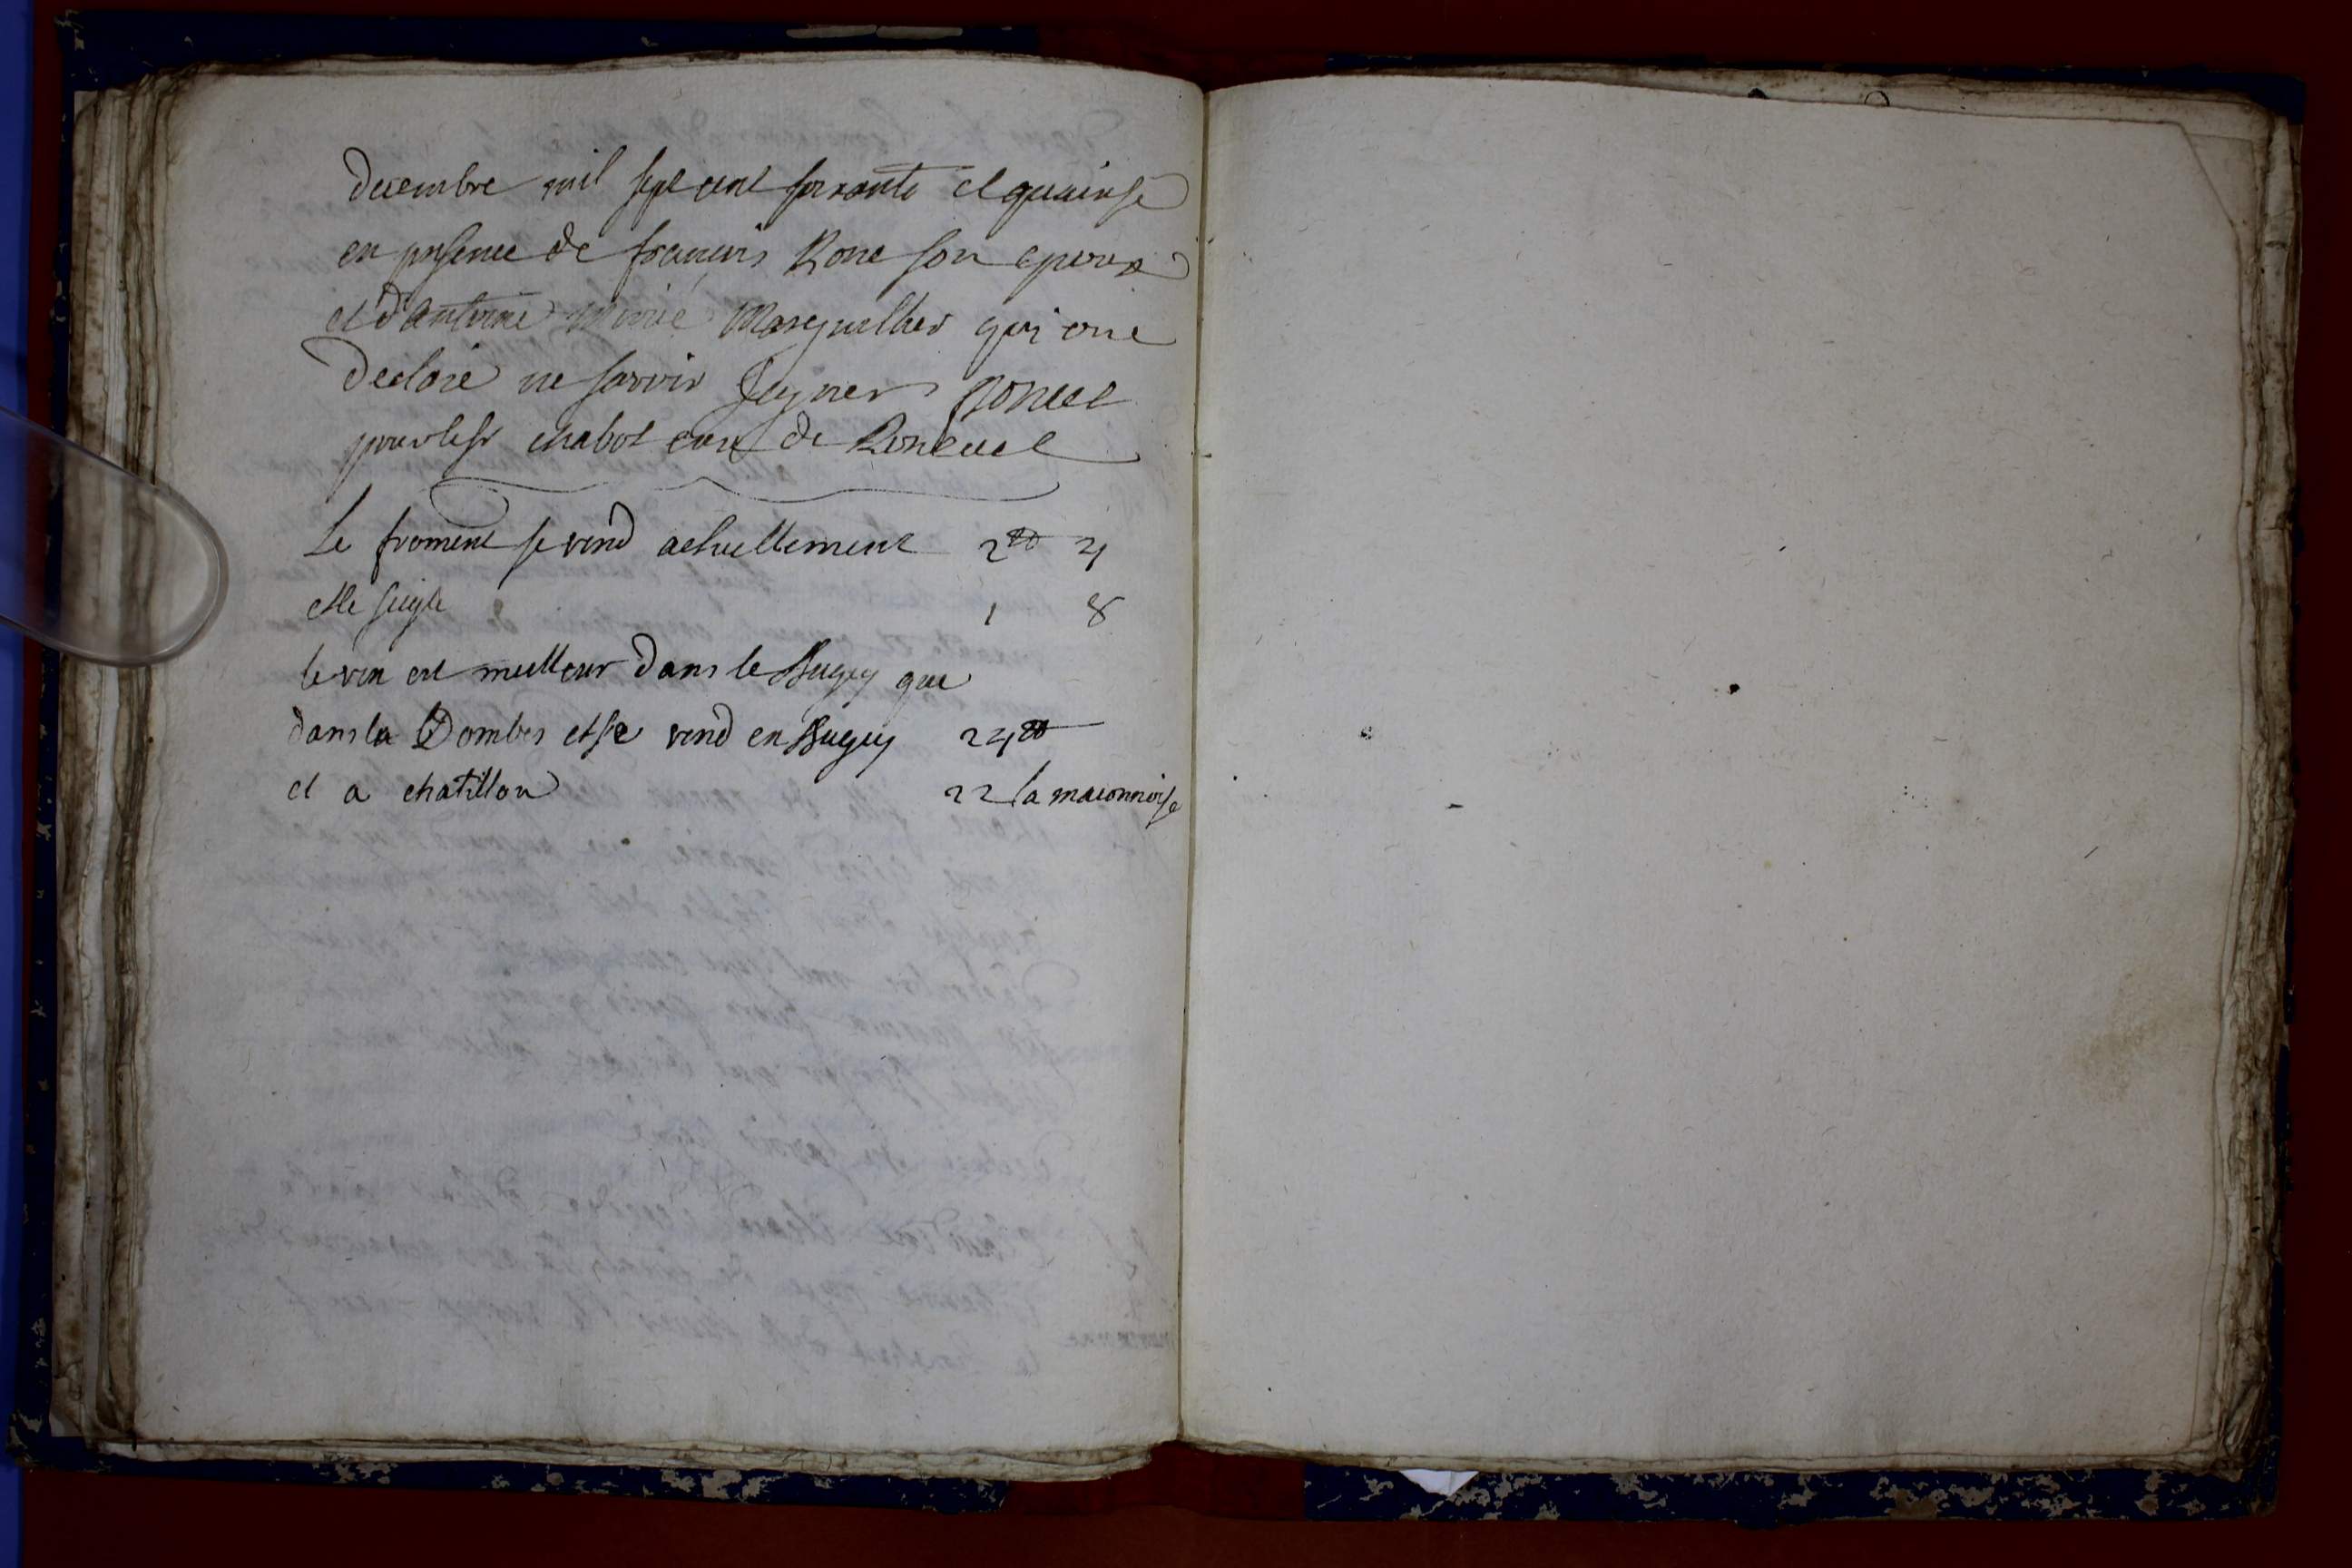 decembre mil sept cent soixante et quainse
en presence de francois Rone son epoux
et d'antoine Marguillier qui ont
declaré ne savoir signer Poncet
pour le sr chabot curé de
Le froment se vend actuellement 2ᵗᵗ 4
et le seigle 1 8
le vin est meilleur dans le Bugey que
dans la Dombes et se vend en Bugey 24ᵗᵗ
et a chatillon 22 la maconnoise